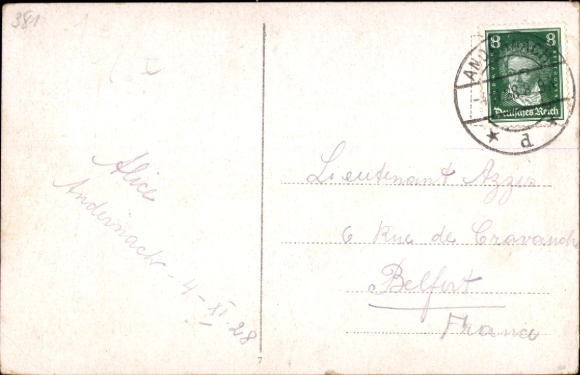 381
8 8
Deutsches Reich
ANDERNACH
d
Alice
Andernach - 4-XI 28
Lieutenant Azzis
6 Rue de Cravanche
Belfort
France
7